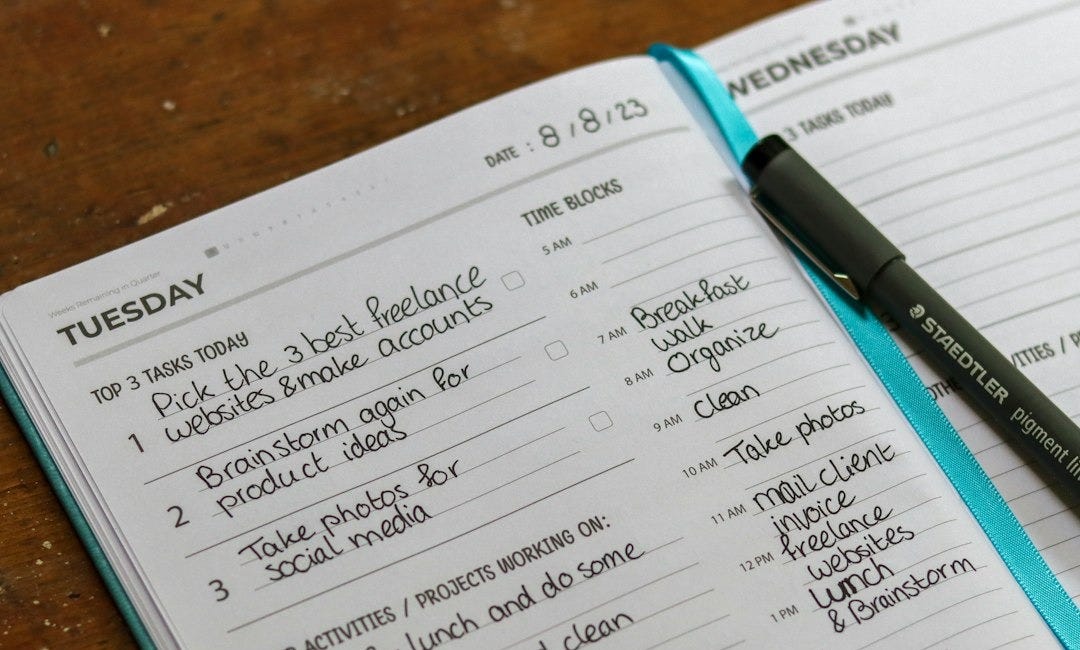 DATE : 8/8/23
Weeks Remaining in Quarter
TUESDAY
TOP 3 TASKS TODAY
1 Pick the 3 best freelance
websites & make accounts
2 Brainstorm again for
product ideas
3 Take photos for
social media
ACTIVITIES / PROJECTS WORKING ON:
lunch and do some
clean
TIME BLOCKS
5 AM
6 AM
7 AM Breakfast
walk
8 AM Organize
9 AM clean
10 AM Take photos
11 AM mail client
invoice
12 PM freelance
websites
1 PM lunch
& Brainstorm
WEDNESDAY
3 TASKS TODAY
STAEDTLER pigment